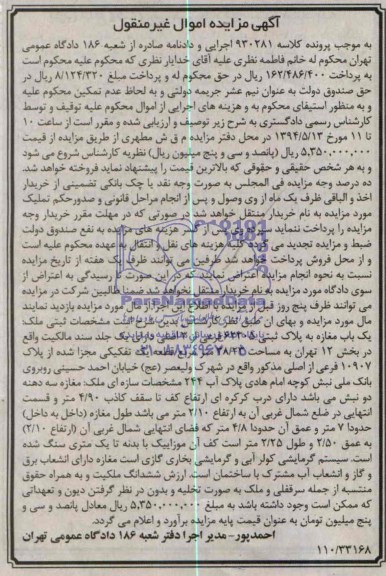 آگهی مزایده اموال غیرمنقول
به موجب پرونده کلاسه ۹۳۰۲۸۱ اجرایی و دادنامه صادره از شعبه ۱۸۶ دادگاه عمومی
تهران محکوم له خانم فاطمه نظری علیه آقای خدایار نظری که محکوم علیه محکوم است
به پرداخت ۱۶۲/۴۸۶/۴۰۰ ریال در حق محکوم له و پرداخت مبلغ ۸/۱۲۴/۳۲۰ ریال در
حق صندوق دولت به عنوان نیم عشر جریمه دولتی و به لحاظ عدم تمکین محکوم علیه
و به منظور استیفای محکوم به و هزینه های اجرایی از اموال محکوم علیه توقیف و توسط
کارشناس رسمی دادگستری به شرح زیر توصیف و ارزیابی شده و مقرر است از ساعت ۱۰
تا ۱۱ مورخ ۱۳۹۴/۵/۱۳ در محل دفتر مزایده م ق ش مطهری از طریق مزایده از قیمت
۵,۳۵۰,۰۰۰,۰۰۰ ریال (پانصد و سی و پنج میلیون ریال) نظریه کارشناس شروع می شود
و به هر شخص حقیقی و حقوقی که بالاترین قیمت را پیشنهاد نماید فروخته خواهد شد.
ده درصد وجه مزایده فی المجلس به صورت وجه نقد یا چک بانکی تضمینی از خریدار
اخذ و الباقی ظرف یک ماه از وی وصول و پس از انجام مراحل قانونی و صدور حکم تملیک
مورد مزایده به نام خریدار منتقل خواهد شد در صورتی که در مهلت مقرر خریدار وجه
مزایده را پرداخت ننماید سپرده وی از کسر هزینه های مزایده به نفع صندوق دولت
ضبط و مزایده تجدید می گردد کلیه هزینه های نقل و انتقال به عهده محکوم علیه است
و از محل فروش پرداخت خواهد شد طرفین می توانند ظرف یک هفته از تاریخ مزایده
نسبت به نحوه انجام مزایده اعتراض نمایند که در این صورت تا رسیدگی به اعتراض از
سوی دادگاه مورد مزایده به نام خریدار منتقل نخواهد شد ضمنا طالبین شرکت در مزایده
می توانند ظرف پنج روز قبل از مزایده با اطلاع این اجرا از مال مورد مزایده بازدید نمایند
مال مورد مزایده و بهای ان طبق نظر کارشناس بدین شرح است مشخصات ثبتی ملک:
یک باب مغازه به پلاک ثبتی فرعی از اصلی دارای یک جلد سند مالکیت واقع
در بخش ۱۲ تهران به مساحت ۳۸/۲۵ متر مربع قطعه یک تفکیکی مجزا شده از پلاک
۱۰۹۰۷ فرعی از اصلی مذکور واقع در شهرک ولیعصر (عج) خیابان احمد حسینی روبروی
بانک ملی نبش کوچه امام هادی پلاک آب ۲۴۴ مشخصات سازه ای ملک: مغازه سه دهنه
دو نبش می باشد دارای درب کرکره ای ارتفاع کف تا سقف کاذب ۴/۹۰ متر و قسمت
انتهایی در ضلع شمال غربی آن به ارتفاع ۲/۱۰ متر می باشد طول مغازه (داخل به داخل)
حدودا ۷ متر و عمق آن حدودا ۴/۸ متر که فضای انتهایی شمال غربی آن (ارتفاع ۲/۱۰)
به عمق ۲/۵۰ و طول ۲/۲۵ متر است کف آن موزاییک با بدنه تا یک متری سنگ شده
است. سیستم گرمایشی کولر آبی و گرمایشی بخاری گازی است مغازه دارای انشعاب برق
و گاز و انشعاب آب مشترک با ساختمان است. ارزش ششدانگ ملکیت و به همراه حقوق
منتسبه از جمله سرقفلی و ملک به صورت تخلیه و بدون در نظر گرفتن دیون و تعهداتی
که ممکن است وجود داشته باشد به مبلغ ۵,۳۵۰,۰۰۰,۰۰۰ ریال معادل پانصد و سی و
پنج میلیون تومان به عنوان قیمت پایه مزایده برآورد و اعلام می گردد.
احمدپور- مدیر اجرا دفتر شعبه ۱۸۶ دادگاه عمومی تهران
۱۱۰/۳۳۱۶۸
ParsNamadData